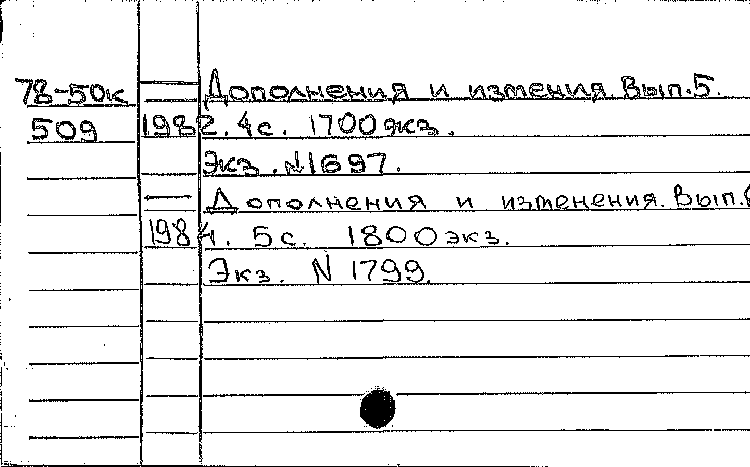 78-50к — Дополнения и измения. Вып.5.
509 1982. 4с. 1700экз.
Экз. №1697.
— Дополнения и изменения. Вып.
1984. 5с. 1800экз.
Экз. N 1799.